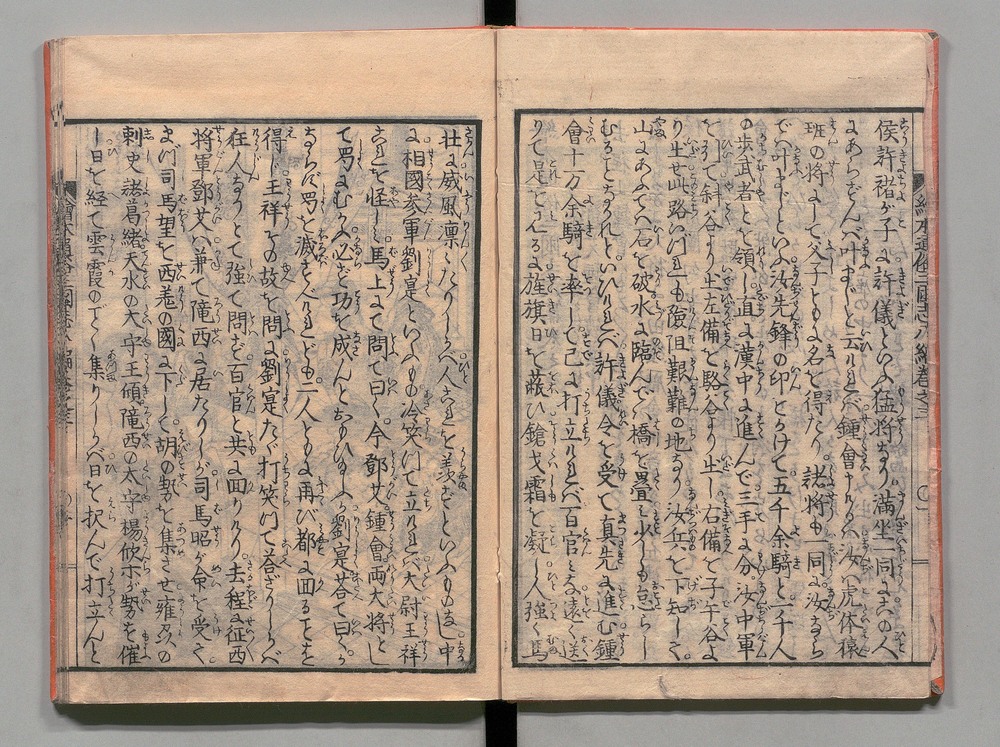 侯許褚が子に許儀といふ猛将あり満坐一同よこの人
にあらざんバ叶まじと云けれバ鍾會よろこび汝ハ虎体猿
班の将よして父子ともに名を得たり諸将も同く汝なら
で叶まじといふ汝先鋒の印をかけて五千余騎と一千人
の歩武者とを領し直に漢中に進んで三手に分汝中軍
をもて斜谷より出左備を駱谷より出し右備を子午谷よ
り出せ此路いづれも險阻艱難の地なり汝兵を下知して
山にあふてハ石を破水に臨んでハ橋を疊少しも怠らし
むることなかれといひけれバ許儀令を受て真先に進む鍾
會十万余騎を率して已に打立けれバ百官みな遠く送
りて是を見るに旌旗日を蔽ひ鎗戈霜を凝し人強く馬
壮に威風凛々たりしかバ人これを羨ずといふものなし中
に相國参軍劉寔といふもの冷笑ゐて立けれバ大尉王祥
これを怪しミ馬上にて問て曰く今鄧艾鍾會両大将とし
て蜀にむかふ必ず功を成んとおもひ給ふか劉寔荅て曰く
かならず蜀を滅すべけれども二人ともに再び都に回ることを
得じ王祥その故を問に劉寔たゞ打笑ゐて荅ざりしかバ
在人なりとて強て問ず百官と共に回りけり去程に征西
将軍鄧艾ハ兼て隴西に居たりしが司馬昭が命を受て
まづ司馬望を西羗の國に下して胡の勢を集させ雍州の
刺史諸葛緒天水の大守王頎隴西の太守楊欣ホが勢を催
し日を経て雲霞のごとく集りしかバ日を択んで打立んと